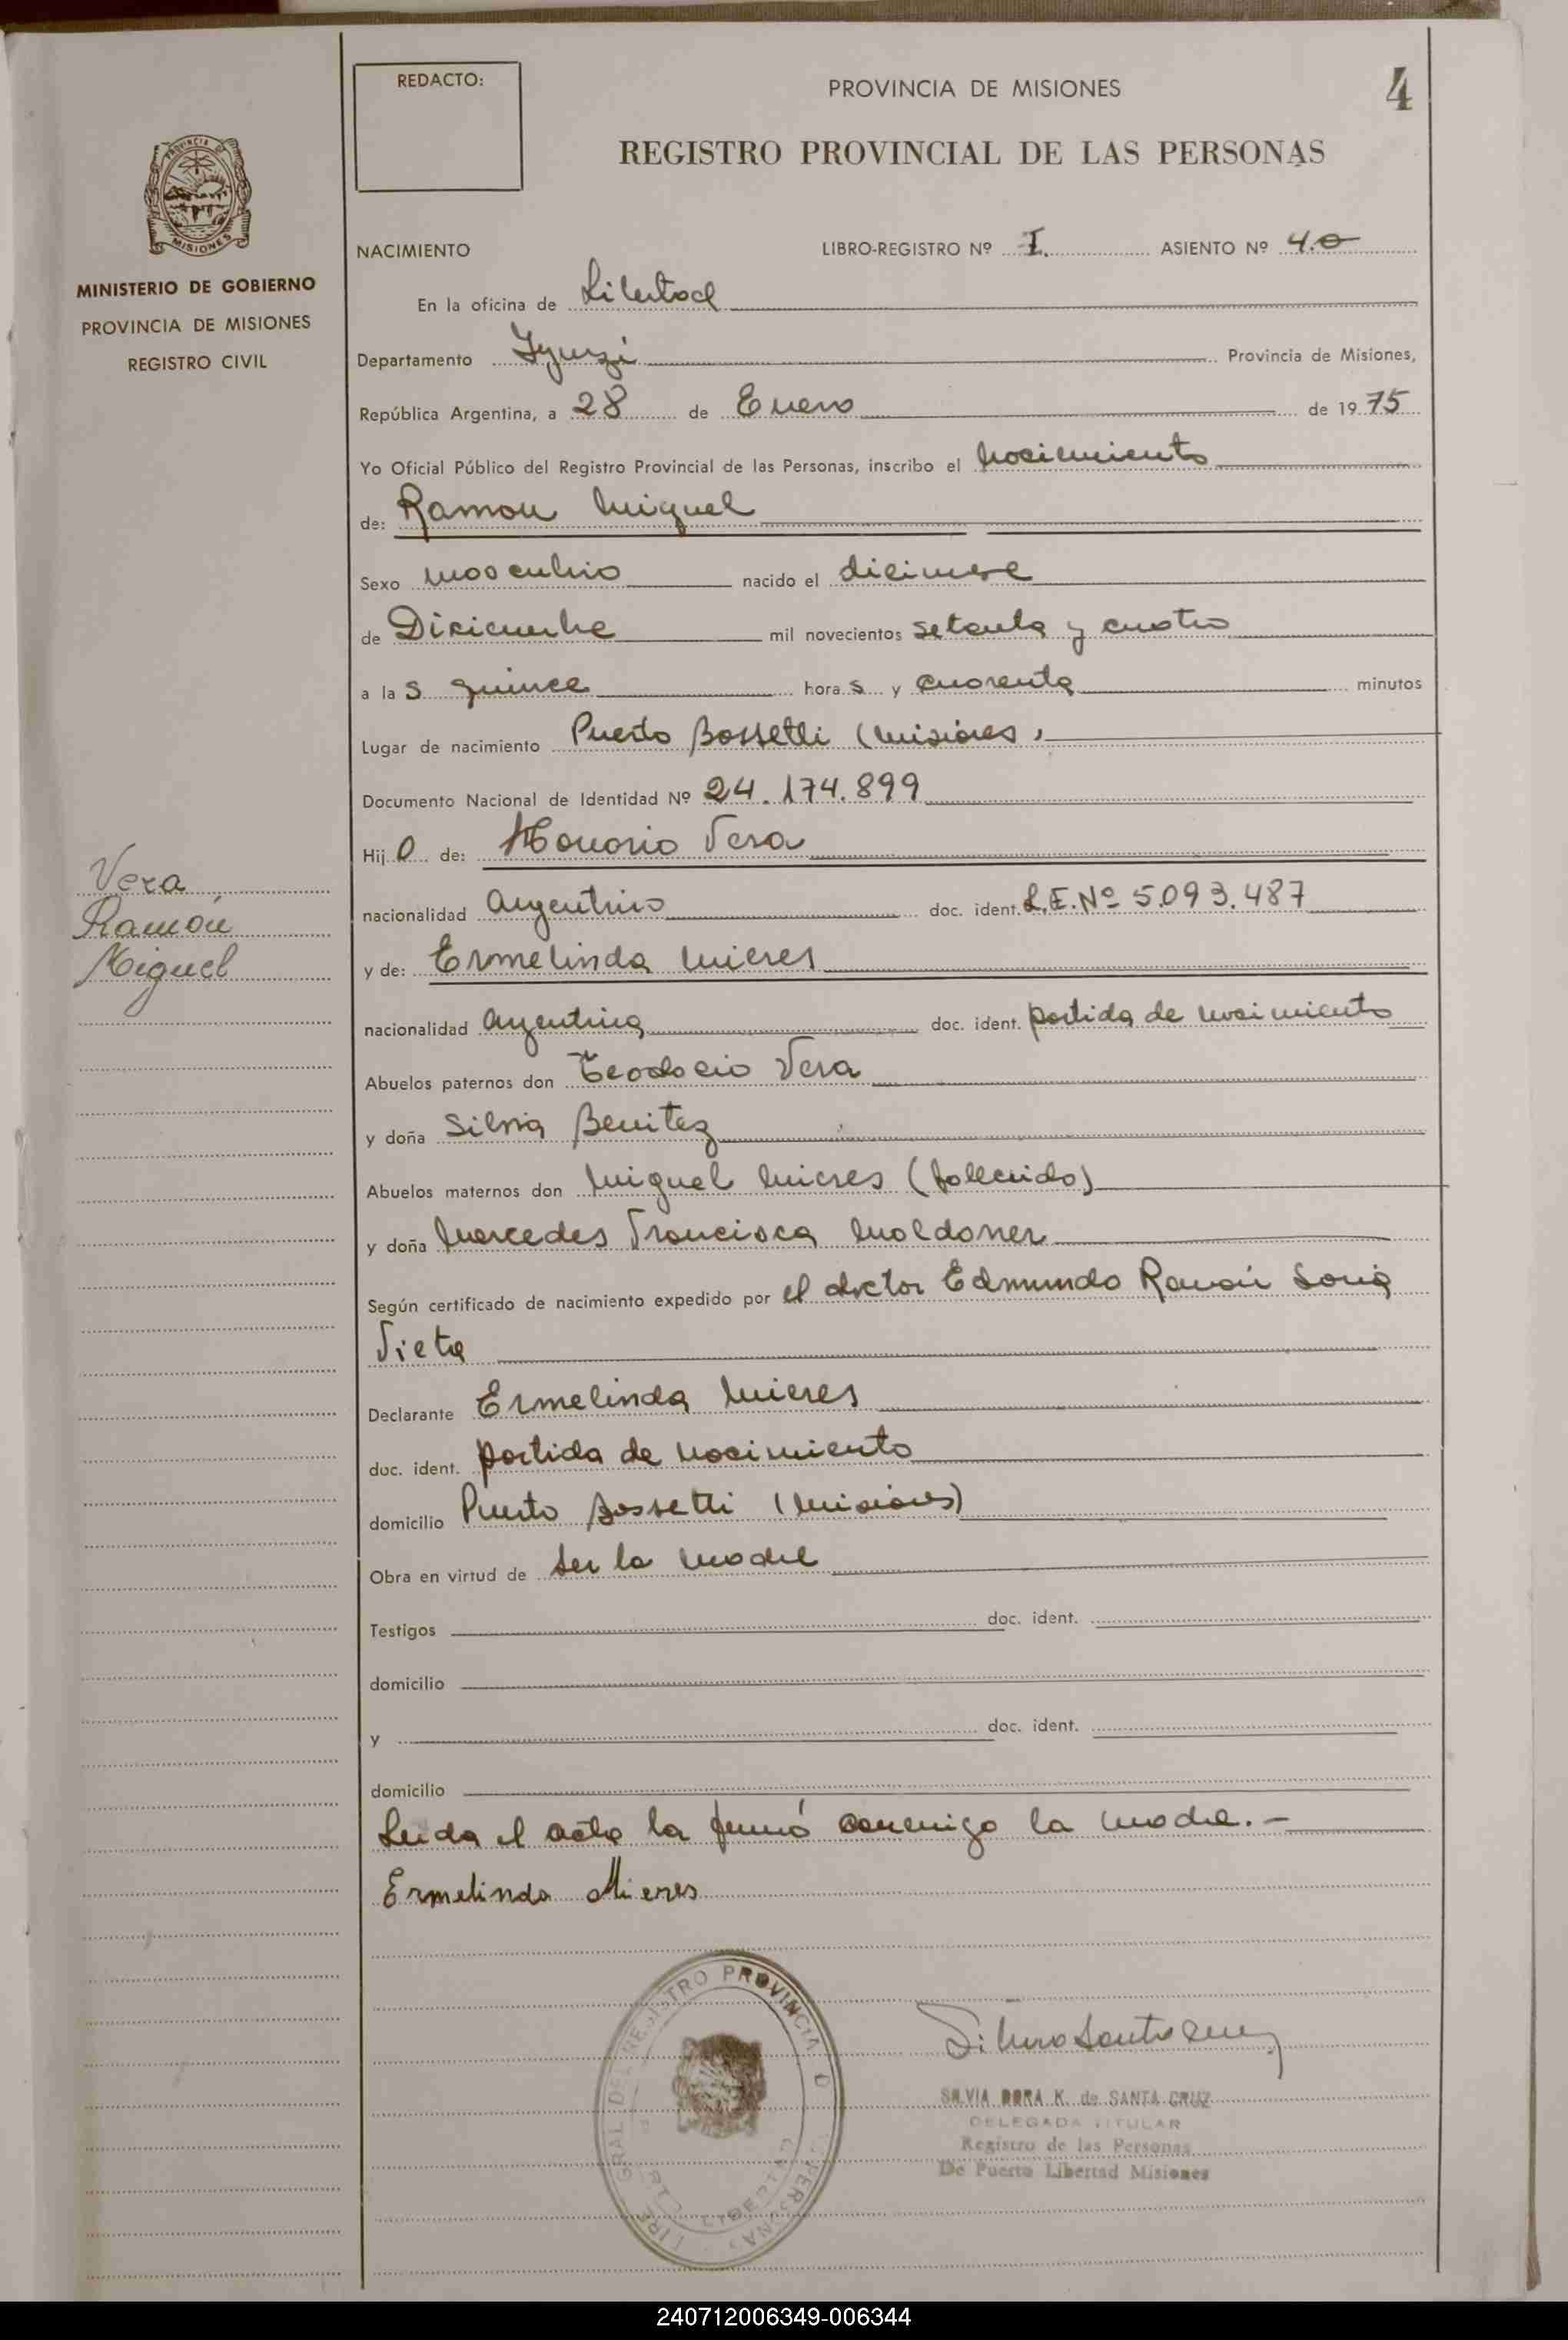 REDACTO:
PROVINCIA DE MISIONES
4
REGISTRO PROVINCIAL DE LAS PERSONAS
PROVINCIA DE
MISIONES
MINISTERIO DE GOBIERNO
PROVINCIA DE MISIONES
REGISTRO CIVIL
NACIMIENTO LIBRO-REGISTRO Nº I. ASIENTO Nº 40
En la oficina de Libertad
Departamento Iguazú Provincia de Misiones,
República Argentina, a 28 de Enero de 1975
Yo Oficial Público del Registro Provincial de las Personas, inscribo el nacimiento
de: Ramon Miguel
Sexo masculino nacido el
de Diciembre mil novecientos setenta y cuatro
a las quince horas y cuarenta minutos
Lugar de nacimiento Puerto Bossetti (Misiones)
Documento Nacional de Identidad Nº 24.174.899
Hijo de: Honorio Vera
nacionalidad argentino doc. ident. L.E.Nº 5.093.487
y de: Ermelinda Mieres
nacionalidad argentina doc. ident. partida de nacimiento
Abuelos paternos don Teodocio Vera
y doña Silvia Benitez
Abuelos maternos don Miguel Mieres (fallecido)
y doña Mercedes Francisca Maldoner
Según certificado de nacimiento expedido por el doctor Edmundo Ramón Soria
Vieta
Declarante Ermelinda Mieres
doc. ident. partida de nacimiento
domicilio Puerto Bossetti (Misiones)
Obra en virtud de ser la madre
Testigos doc. ident.
domicilio
y doc. ident.
domicilio
Leida el acta la firmó conmigo la madre.-
Ermelinda Mieres
Vera
Ramón
Miguel
SILVIA DORA K. de SANTA CRUZ
DELEGADA TITULAR
Registro de las Personas
De Puerto Libertad Misiones
240712006349-006344